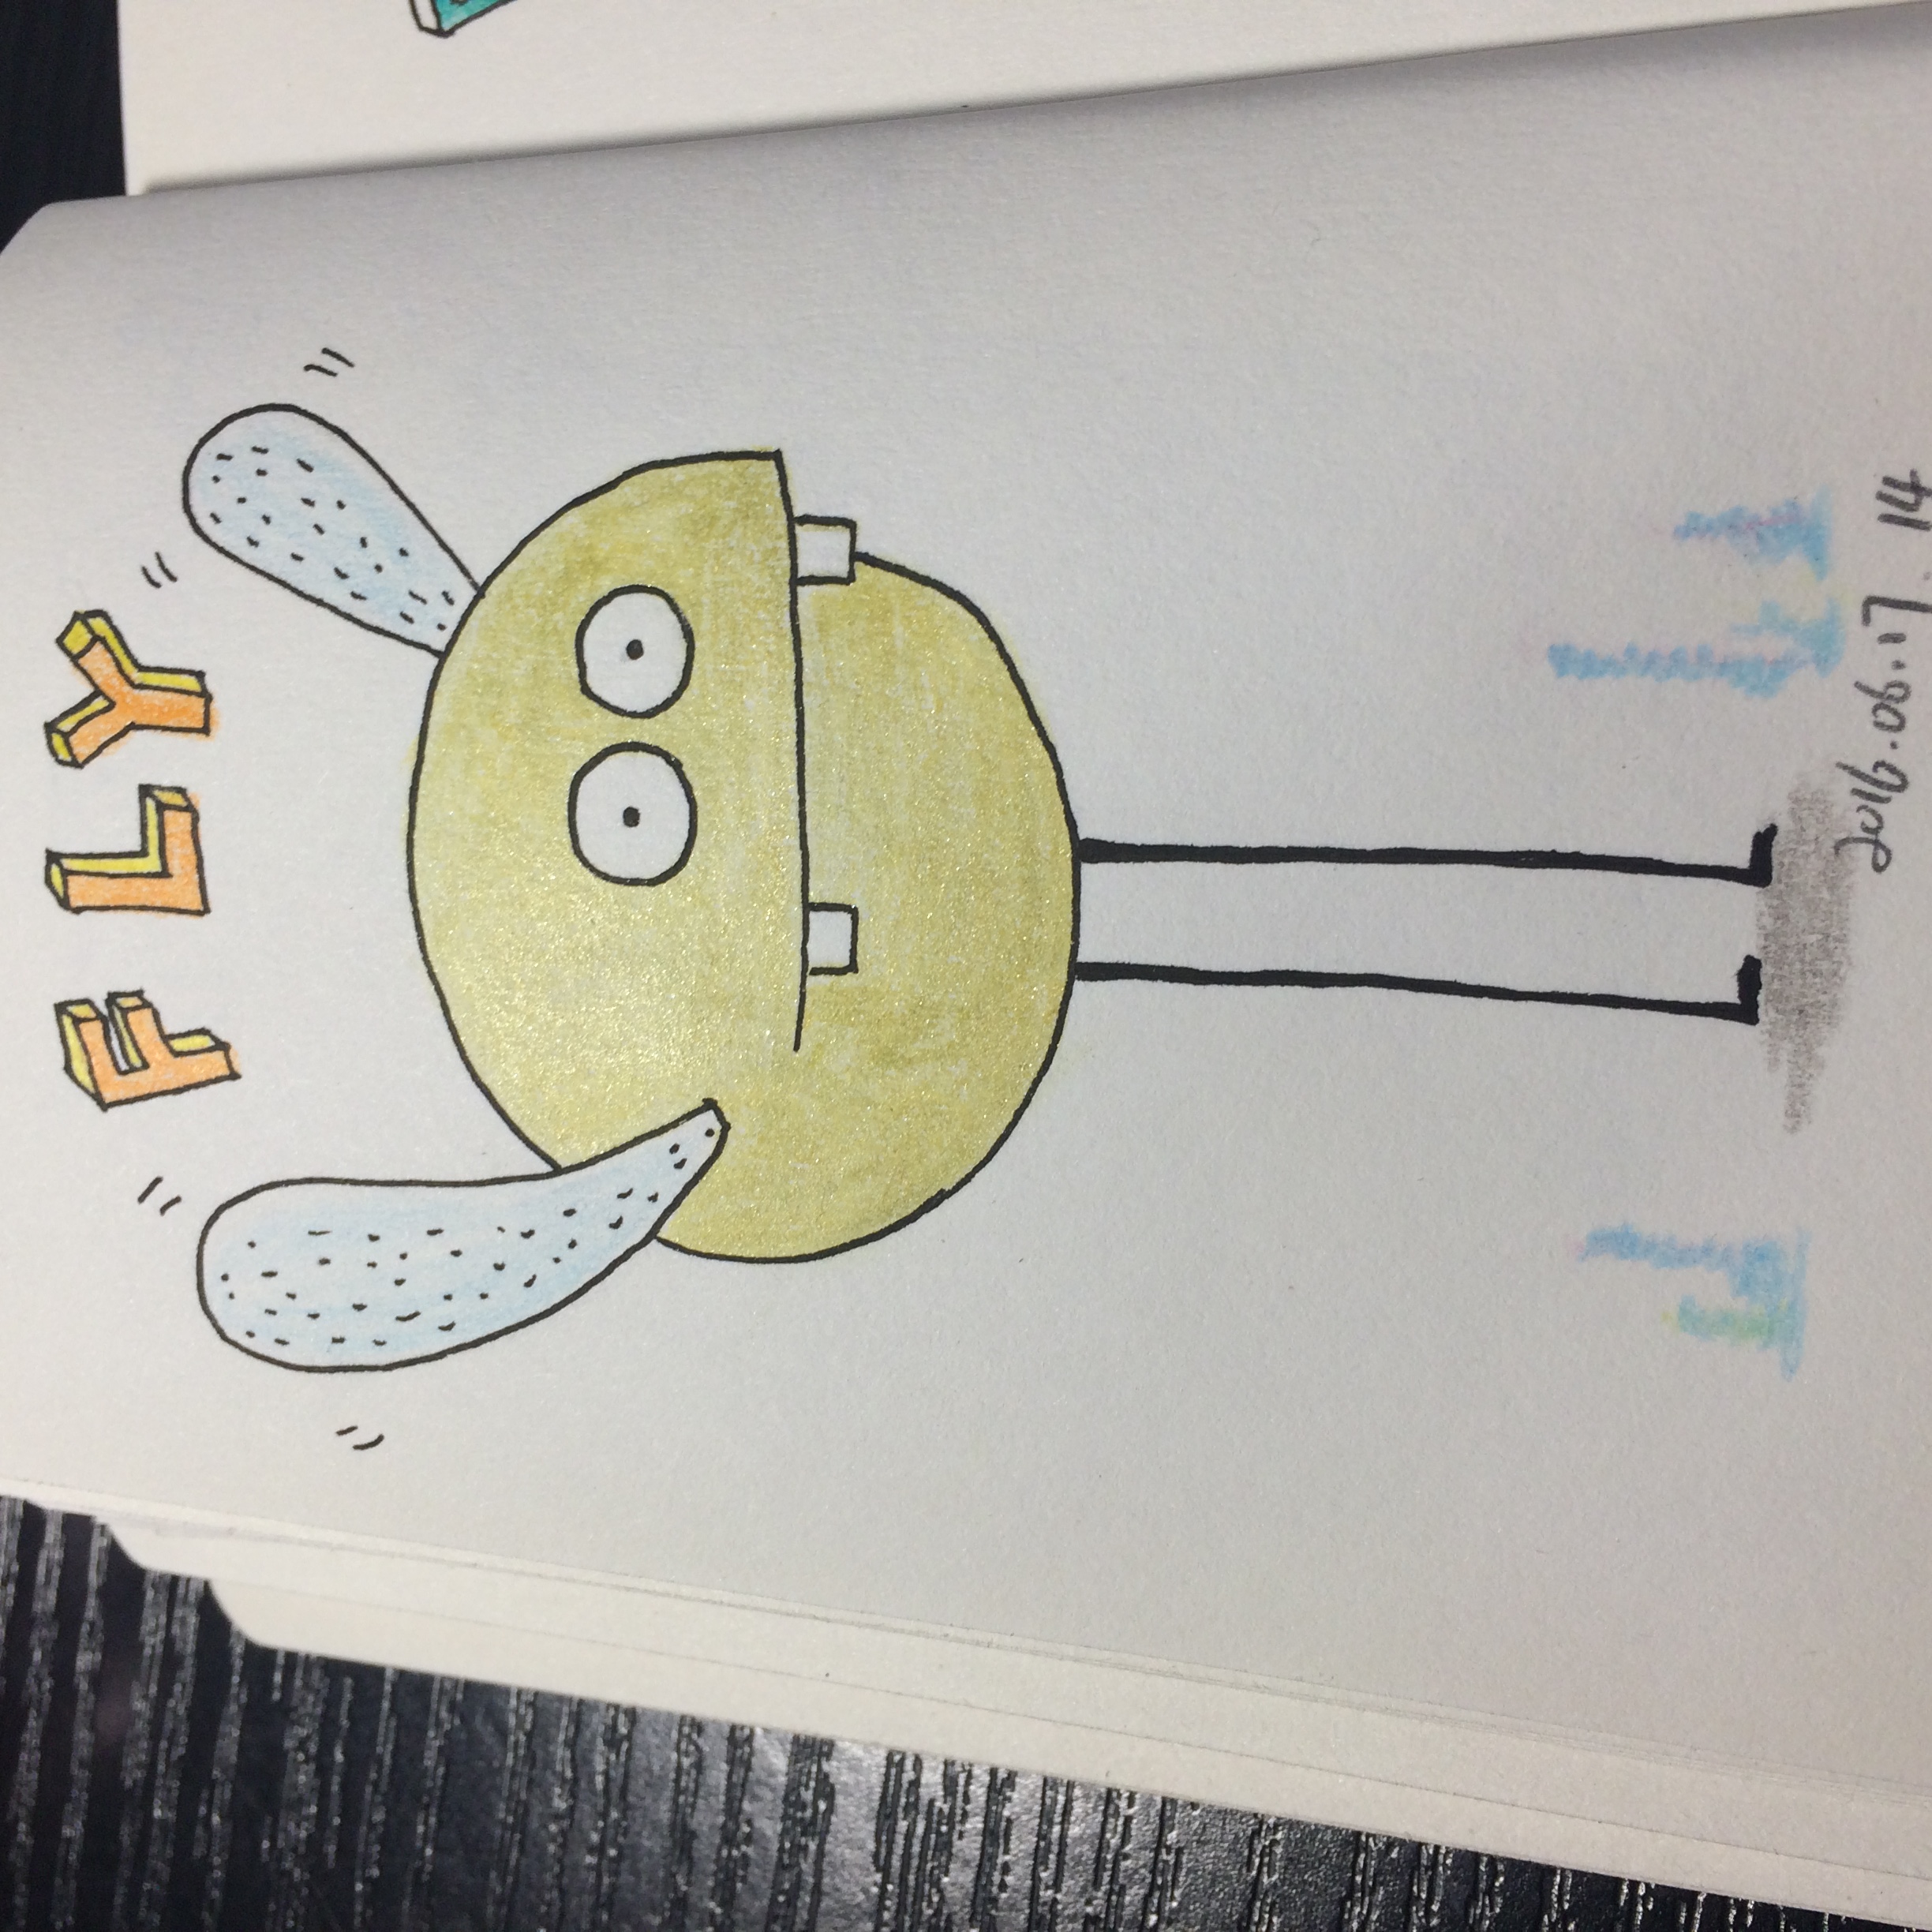 FLY
2016.06.17. 14